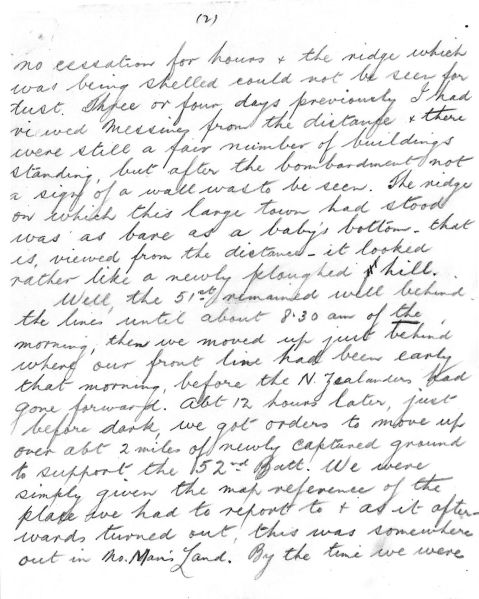 (2)
no cessation for hours & the ridge which
was being shelled could not be seen for
dust. Three or four days previously I had
viewed Messines from the distance & there
were still a fair number of buildings
standing, but after the bombardment not
a sign of a wall was to be seen. The ridge
on which this large town had stood
was as bare as a baby's bottom - that
is, viewed from the distance - it looked
rather like a newly ploughed hill.
Well, the 51st remained well behind
the lines until about 8.30 am of the
morning, then we moved up just behind
where our front line had been early
that morning, before the N. Zealanders had
gone forward. Abt 12 hours later, just
before dark, we got orders to move up
over abt 2 miles of newly captured ground
to support the 52nd Batt. We were
simply given the map reference of the
place we had to report to & as it after-
wards turned out, this was somewhere
out in No. Man's Land. By the time we were